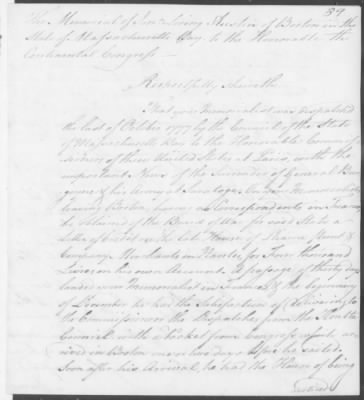 59
The Memorial of Jonn Loring Austin of Boston in the
State of Massachusetts Bay to the Honorable the
Continental Congress —
Respectfully Sheweth
That your Memorialist was dispatched
the last of October 1777 by the Council of the State
of Massachusetts Bay to the Honorable Commis-
sioners of these United States at Paris, with the
important News of the Surrender of General Bur-
goyne & his Army at Saratoga. On your Memorialist
leaving Boston, having no Correspondents in France
he obtained of the Board of War for said State a
Letter of Credit on the late House of
Company Merchants in Nantes for Four thousand
Livres on his own Account. A passage of thirty days
landed your Memorialist in France & the beginning
of December he had the Satisfaction of delivering to
the Commissioners the Dispatches from the
Council with a Packet from Congress which ar-
rived in Boston near two days before he sailed.
Soon after his Arrival, he had the Honor of being